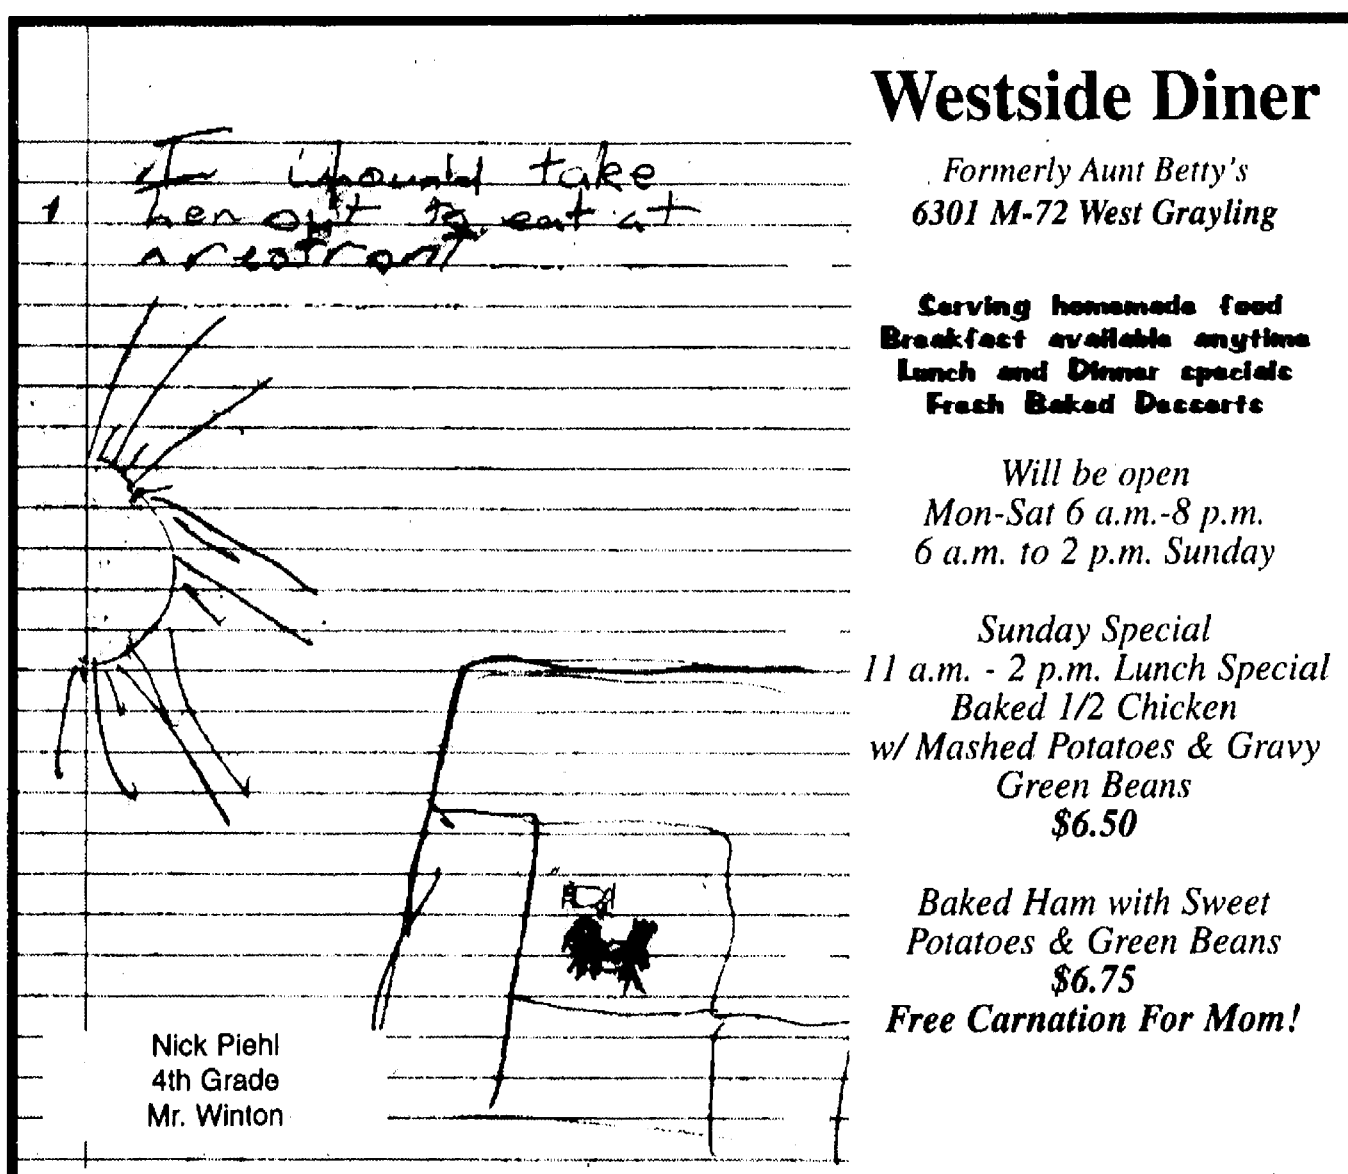 I whould take
her out to eat at
a reotront
Nick Piehl
4th Grade
Mr. Winton
Westside Diner
Formerly Aunt Betty's
6301 M-72 West Grayling
Serving homemade food
Breakfast available anytime
Lunch and Dinner specials
Fresh Baked Desserts
Will be open
Mon-Sat 6 a.m.-8 p.m.
6 a.m. to 2 p.m. Sunday
Sunday Special
11 a.m. - 2 p.m. Lunch Special
Baked 1/2 Chicken
w/ Mashed Potatoes & Gravy
Green Beans
$6.50
Baked Ham with Sweet
Potatoes & Green Beans
$6.75
Free Carnation For Mom!